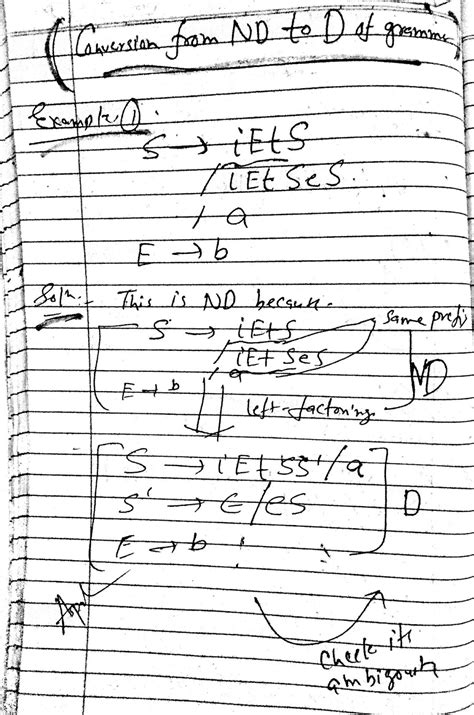 Conversion from ND to D of grammar
Example ①.
S → iEtS
/ iEtSeS
/ a
E → b
Solⁿ:- This is ND because.
S → iEtS same prefix
/ iEtSeS
/ a
E → b ND
left-factoring
S → iEtSS'/a
S' → ∈/eS D
E → b
check its
ambigouty